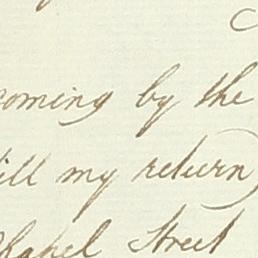 coming by the
till my return
Chapel Street